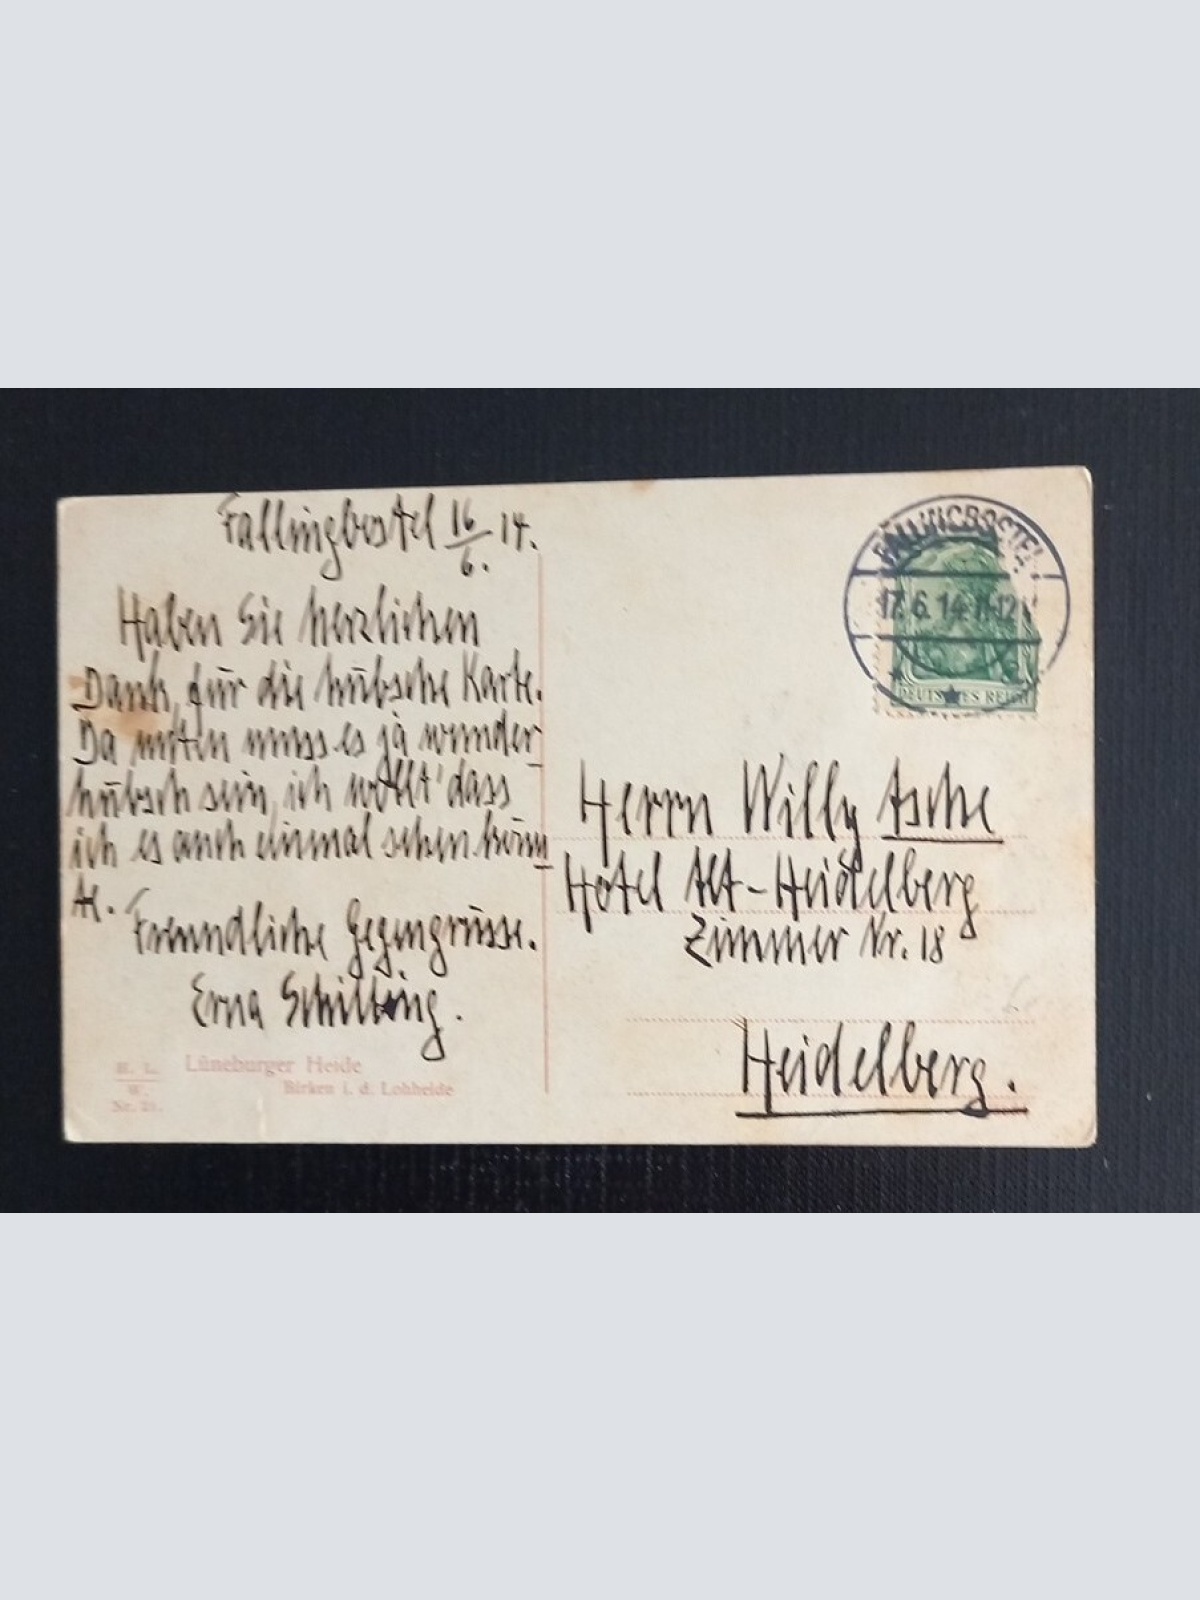 Fallingbostel 16/6. 14.
Haben Sie herzlichen
Dank, für die hübsche Karte.
Da unten muss es ja wunder-
hübsch sein, ich wollt' dass
ich es auch einmal sehen könn
te.
Freundliche Gegengrüsse.
Erna Schilling.
H. L.
W.
Nr. 21.
Lüneburger Heide
Birken i. d. Lohheide
FALLINGBOSTEL
17.6.14. 11-12
DEUTSCHES REICH
Herrn Willy Asche
Hotel Alt-Heidelberg
Zimmer Nr. 18
Heidelberg.